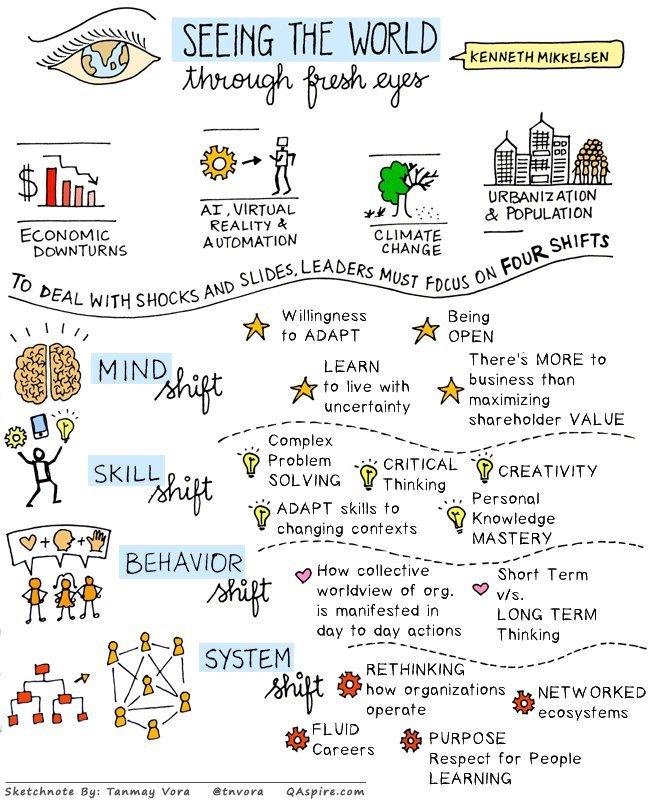 SEEING THE WORLD
through fresh eyes
KENNETH MIKKELSEN
$
ECONOMIC
DOWNTURNS
AI, VIRTUAL
REALITY &
AUTOMATION
CLIMATE
CHANGE
URBANIZATION
& POPULATION
TO DEAL WITH SHOCKS AND SLIDES, LEADERS MUST FOCUS ON FOUR SHIFTS
MIND
shift
Willingness
to ADAPT
Being
OPEN
LEARN
to live with
uncertainty
There's MORE to
business than
maximizing
shareholder VALUE
SKILL
shift
Complex
Problem
SOLVING
CRITICAL
Thinking
CREATIVITY
ADAPT skills to
changing contexts
Personal
Knowledge
MASTERY
+ +
BEHAVIOR
shift
How collective
worldview of org.
is manifested in
day to day actions
Short Term
v/s.
LONG TERM
Thinking
SYSTEM
shift
RETHINKING
how organizations
operate
NETWORKED
ecosystems
FLUID
Careers
PURPOSE
Respect for People
LEARNING
Sketchnote By: Tanmay Vora @tnvora QAspire.com